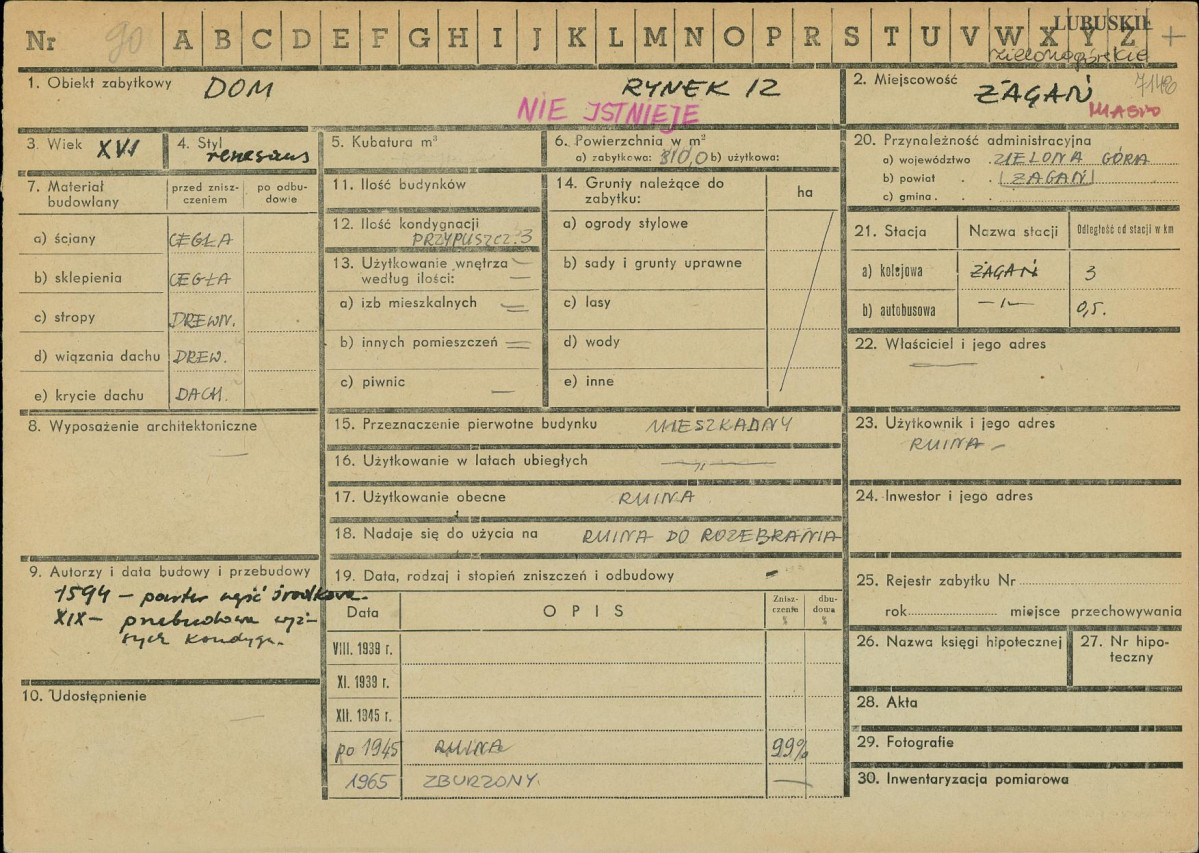 Nr 90 A B C D E F G H I J K L M N O P R S T U V W X Y Z +
LUBUSKIE
zielonogórskie
1. Obiekt zabytkowy DOM RYNEK 12
NIE ISTNIEJE
2. Miejscowość ŻAGAŃ 7148
MIASTO
3. Wiek XVI
4. Styl renesans
5. Kubatura m³
6. Powierzchnia w m²
a) zabytkowa: 310,0 b) użytkowa:
7. Materiał budowlany
przed zniszczeniem
po odbudowie
a) ściany CEGŁA
b) sklepienia CEGŁA
c) stropy DREWN.
d) wiązania dachu DREW.
e) krycie dachu DACH.
8. Wyposażenie architektoniczne
—
9. Autorzy i data budowy i przebudowy
1594 – parter część środkowa.
XIX – przebudowa wyż-
szych kondygn.
10. Udostępnienie
—
11. Ilość budynków
12. Ilość kondygnacji
PRZYPUSZCZ. 3
13. Użytkowanie wnętrza —
według ilości: —
a) izb mieszkalnych =
b) innych pomieszczeń =
c) piwnic —
14. Grunty należące do
zabytku:
ha
a) ogrody stylowe
b) sady i grunty uprawne
c) lasy
d) wody
e) inne
15. Przeznaczenie pierwotne budynku MIESZKALNY
16. Użytkowanie w latach ubiegłych —"—
17. Użytkowanie obecne RUINA
18. Nadaje się do użycia na RUINA DO ROZEBRANIA
19. Data, rodzaj i stopień zniszczeń i odbudowy
Data OPIS Znisz-
czenia % dbu-
dowa %
VIII. 1939 r.
XI. 1939 r.
XII. 1945 r.
po 1945 RUINA 99%
1965 ZBURZONY. —
20. Przynależność administracyjna
a) województwo . ZIELONA GÓRA
b) powiat . . ŻAGAŃ
c) gmina . . .
21. Stacja Nazwa stacji Odległość od stacji w km
a) kolejowa ŻAGAŃ 3
b) autobusowa —"— 0,5.
22. Właściciel i jego adres
—
23. Użytkownik i jego adres
RUINA –
24. Inwestor i jego adres
25. Rejestr zabytku Nr
rok miejsce przechowywania
26. Nazwa księgi hipotecznej
27. Nr hipo-
teczny
28. Akta
29. Fotografie
30. Inwentaryzacja pomiarowa